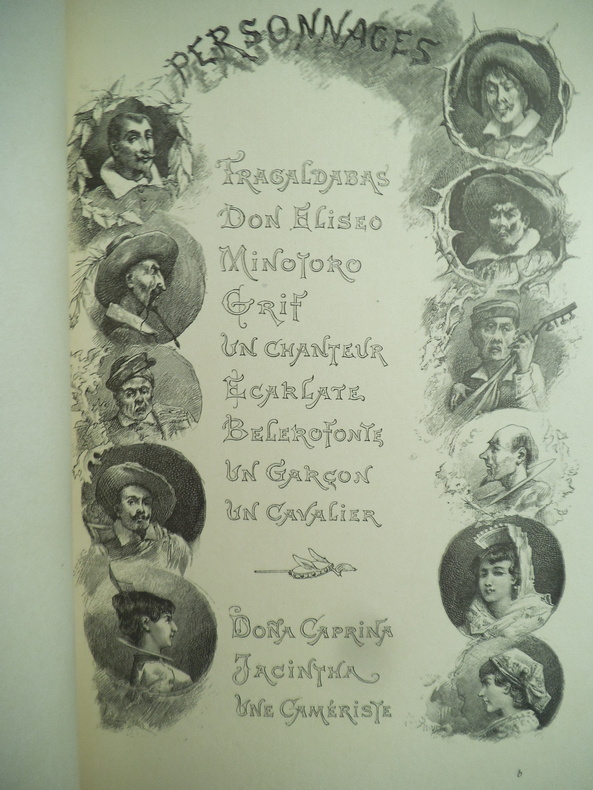 PERSONNAGES
TRAGALDABAS
DON ELISEO
MINOTORO
GRIF
UN CHANTEUR
ÉCARLATE
BELEROFONTE
UN GARÇON
UN CAVALIER
DOÑA CAPRINA
JACINTHA
UNE CAMÉRISTE
b